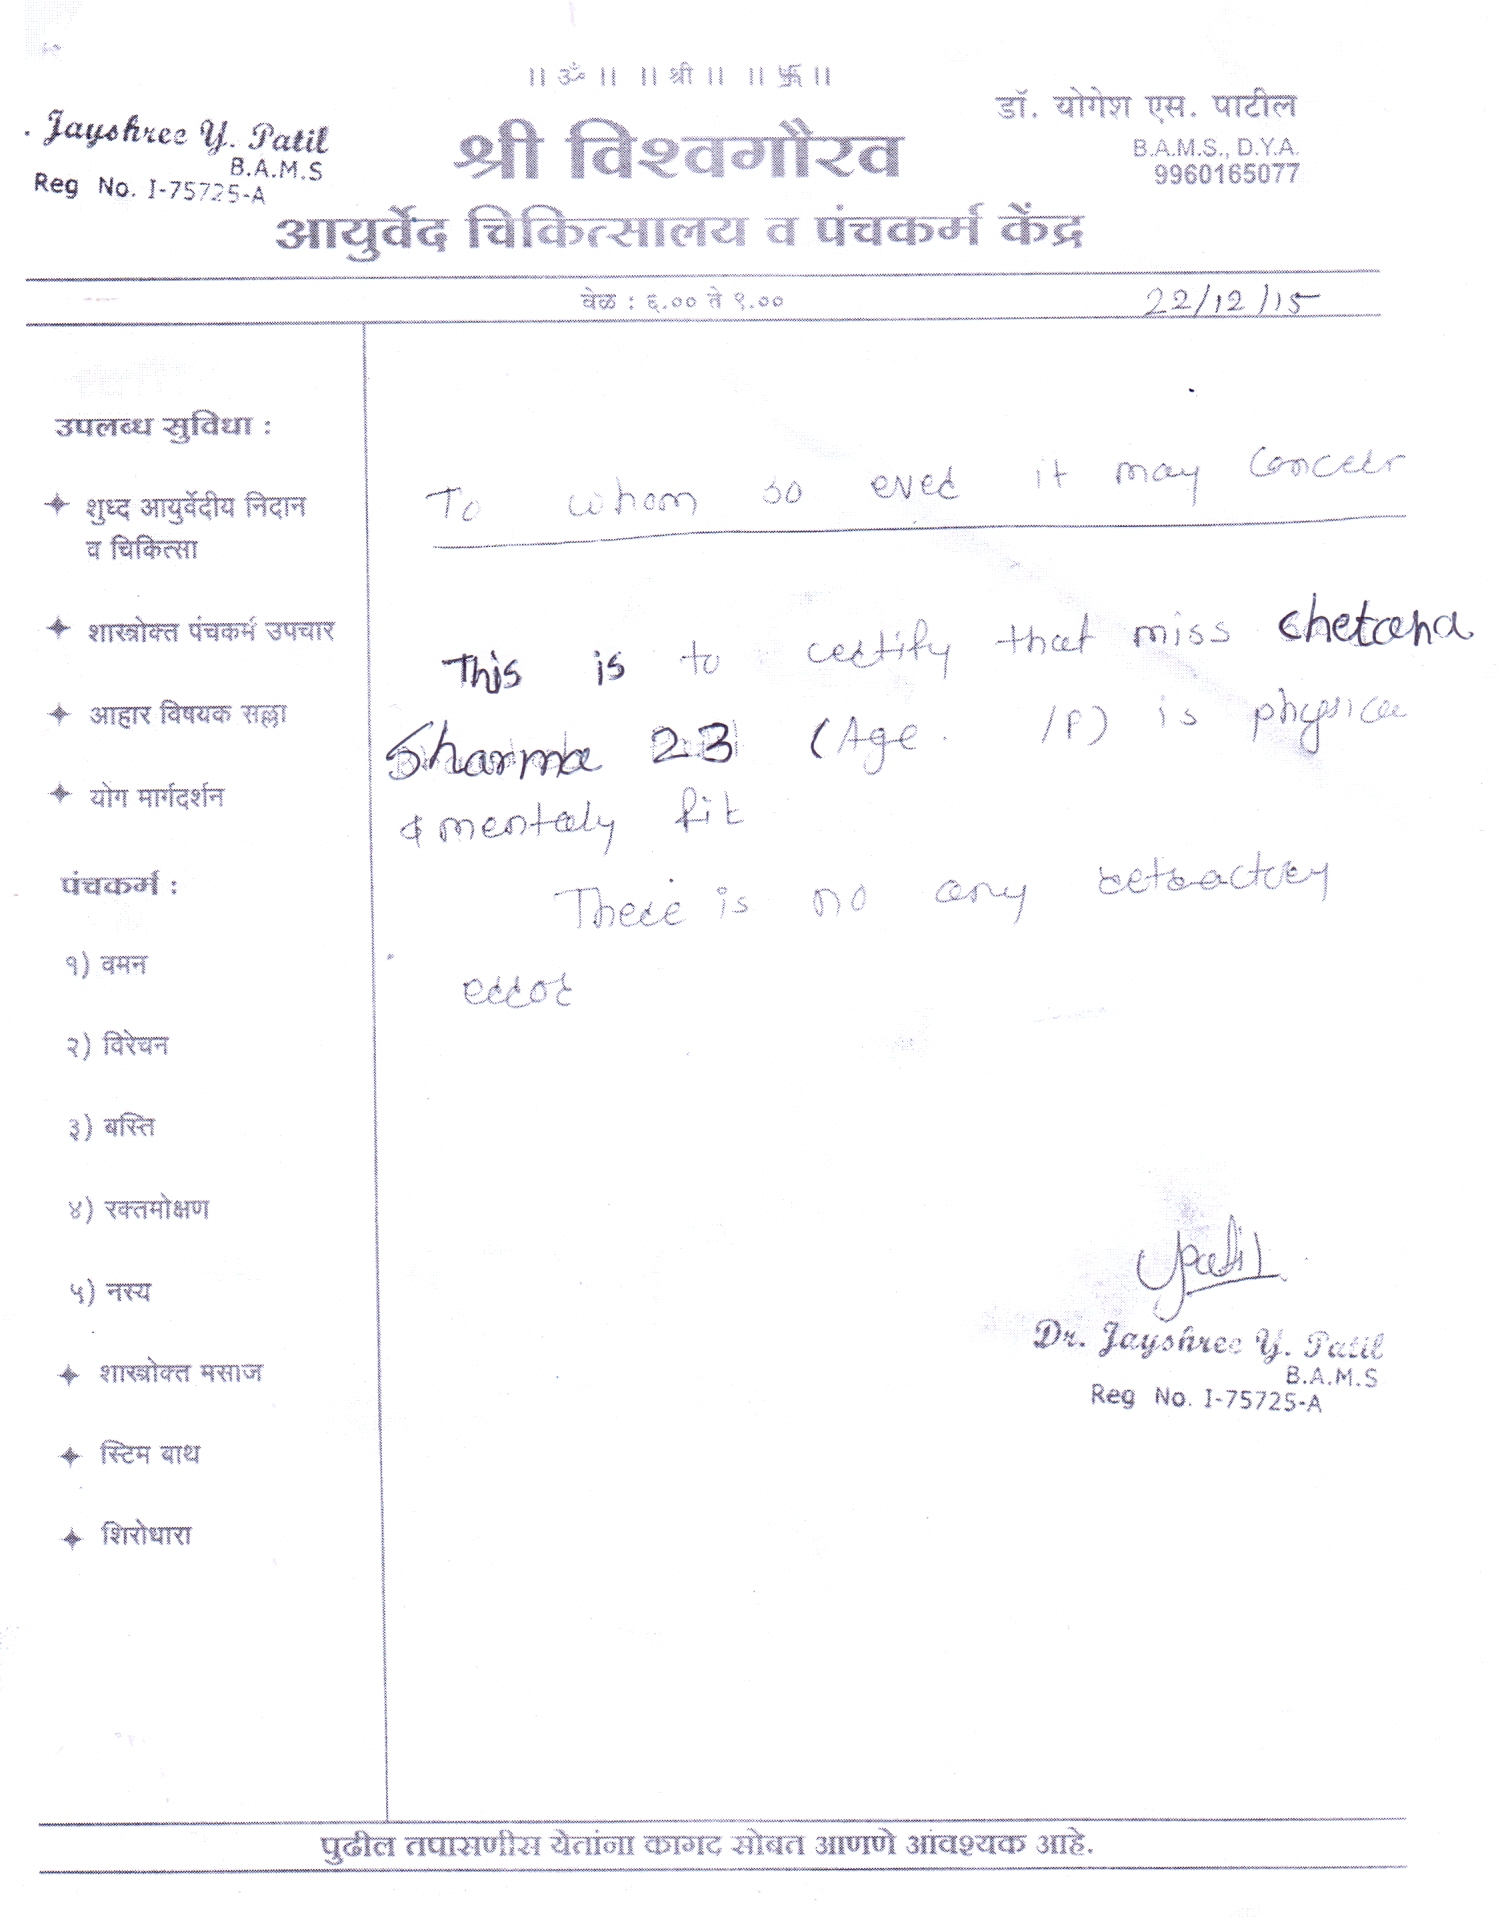 ॥ ॐ ॥ ॥ श्री ॥ ॥ 卐 ॥
Jayshree Y. Patil
B.A.M.S
Reg No. I-75725-A
श्री विश्वगौरव
डॉ. योगेश एस. पाटील
B.A.M.S., D.Y.A.
9960165077
आयुर्वेद चिकित्सालय व पंचकर्म केंद्र
वेळ : ६.०० ते ९.००
22/12/15
उपलब्ध सुविधा :
शुध्द आयुर्वेदीय निदान
व चिकित्सा
शास्त्रोक्त पंचकर्म उपचार
आहार विषयक सल्ला
योग मार्गदर्शन
पंचकर्म :
१) वमन
२) विरेचन
३) बस्ति
४) रक्तमोक्षण
५) नस्य
शास्त्रोक्त मसाज
स्टिम बाथ
शिरोधारा
To whom so ever it may concer
This is to certify that miss chetana
Sharma 23 (Age. /F) is physica
& mentaly fit
There is no any retractrey
error
Patil
Dr. Jayshree Y. Patil
B.A.M.S
Reg No. I-75725-A
पुढील तपासणीस येतांना कागद सोबत आणणे आवश्यक आहे.